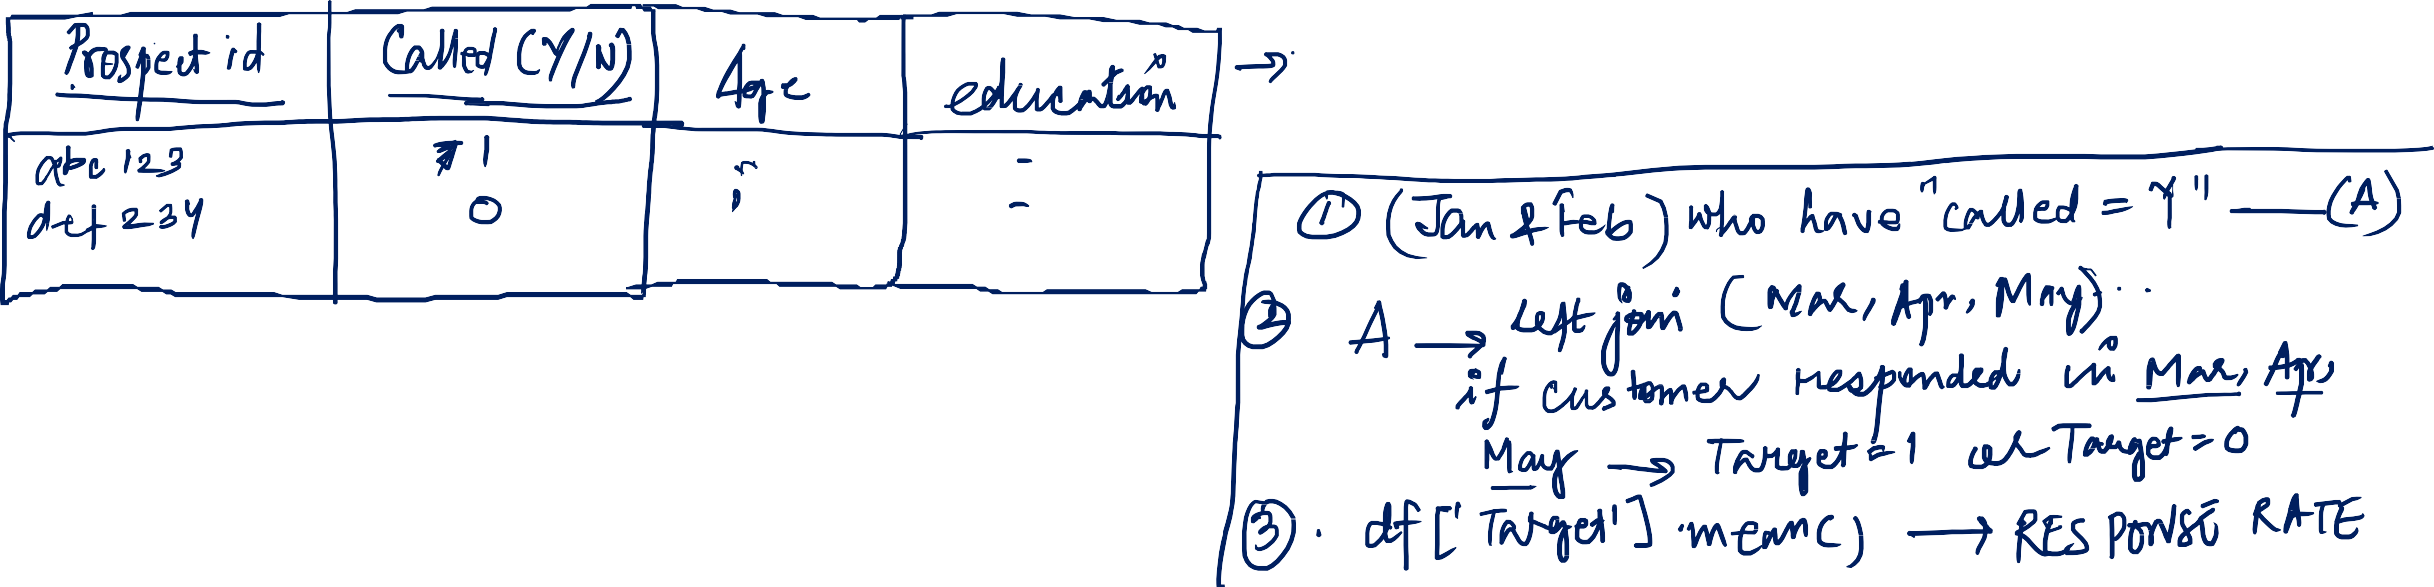 Prospect id Called (Y/N) Age education →
abc 123 1 " -
def 234 0 , -
① (Jan & Feb) who have "called = Y" — (A)
② A → Left join (Mar, Apr, May)..
if customer responded in Mar, Apr,
May → Target = 1 or Target = 0
③ . df['Target'].mean() → RESPONSE RATE